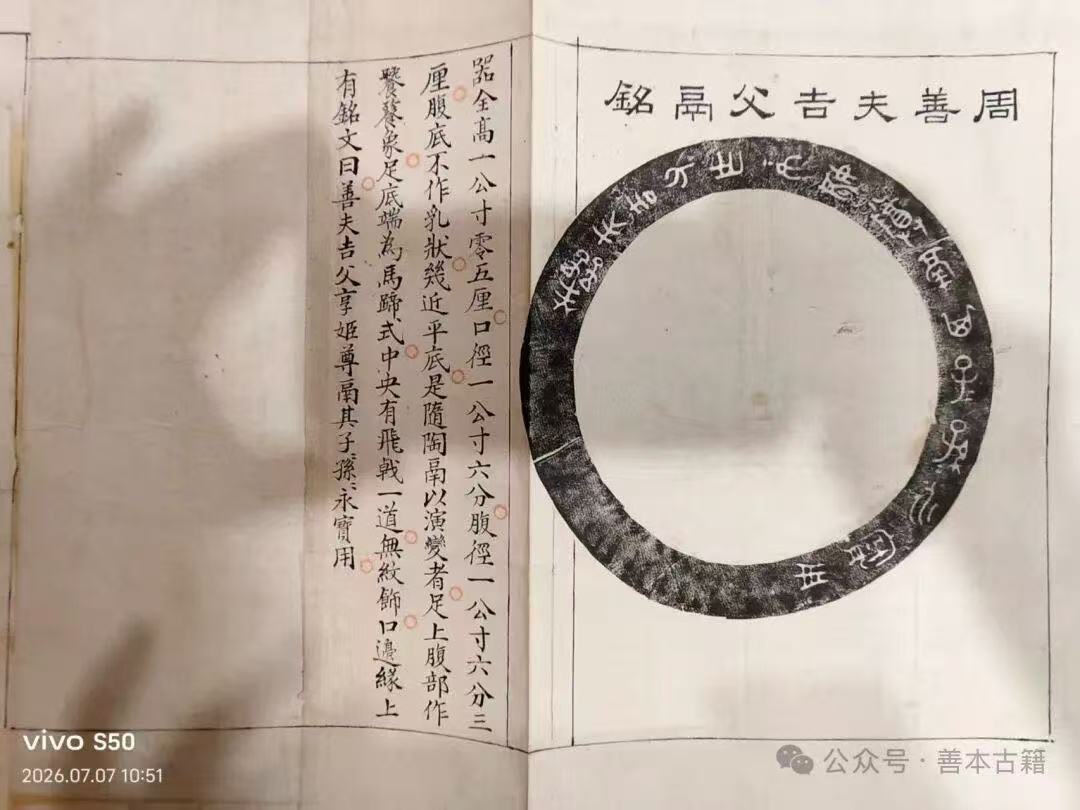 周善夫吉父鬲銘
器全高一公寸零五厘口徑一公寸六分腹徑一公寸六分三
厘腹底不作乳狀幾近平底是隨陶鬲以演變者足上腹部作
饕餮象足底端為馬蹄式中央有飛戟一道無紋飾口邊緣上
有銘文曰善夫吉父享姬尊鬲其子孫永寶用
vivo S50
2026.07.07 10:51
公众号·善本古籍